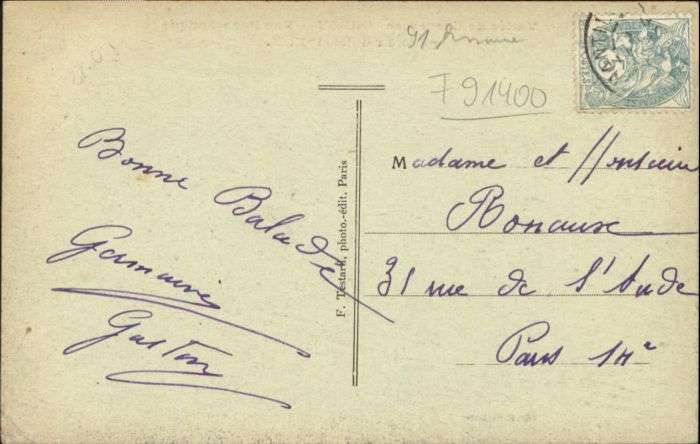 91
F 91400
Bonne
Balade
Germaine
Gaston
F. Testard, photo.-édit. Paris
Madame et Monsieur
Ronaux
31 rue de l'Aude
Paris 14e